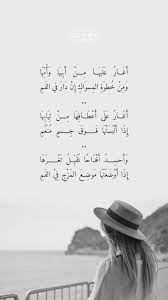 أَغَارُ عَلَيْهَا مِنْ أَبِيهَا وَأُمِّهَا
وَمِنْ خُطْوَةِ المِسْوَاكِ إِنْ دَارَ فِي الفَمِ
..
أَغَارُ عَلَى أَعْطَافِهَا مِنْ ثِيَابِهَا
إِذَا أَلْبَسَتْهَا فَوْقَ جِسْمٍ مُنَعَّمِ
..
وَأَحْسِدُ أَقْدَاحًا تُقَبِّلُ ثَغْرَهَا
إِذَا أَوْضَعَتْهَا مَوْضِعَ المَزْجِ فِي الفَمِ